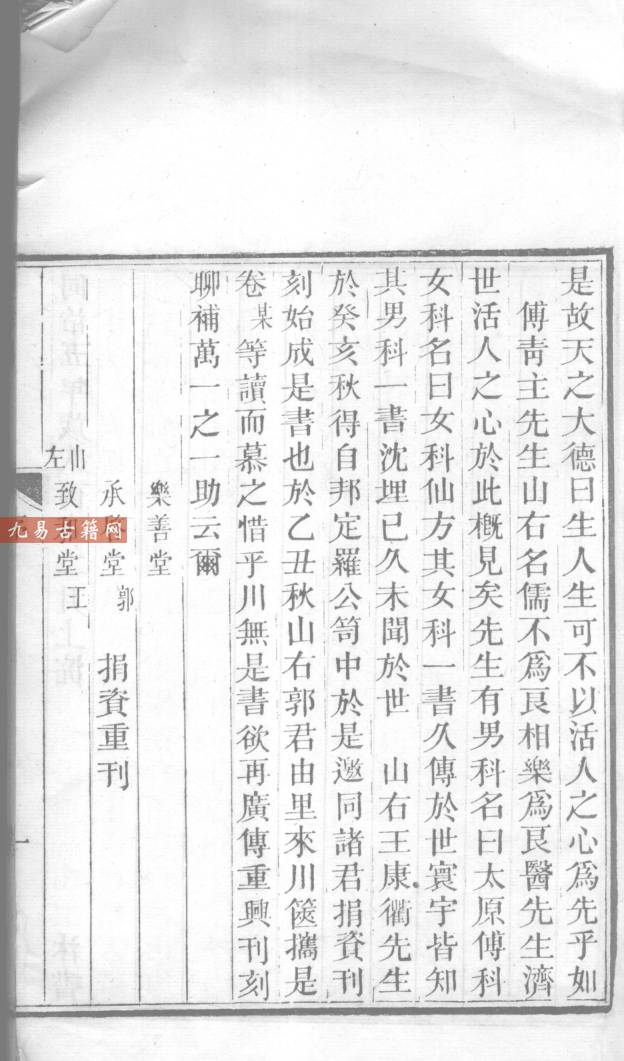 是故天之大德曰生人生可不以活人之心爲先乎如
傅靑主先生山右名儒不爲良相樂爲良醫先生濟
世活人之心於此槪見矣先生有男科名曰太原傅科
女科名曰女科仙方其女科一書久傳於世寰宇皆知
其男科一書沈埋已久未聞於世　山右王康衢先生
於癸亥秋得自邦定羅公笥中於是邀同諸君捐資刊
刻始成是書也於乙丑秋山右郭君由里來川篋攜是
卷某等讀而慕之惜乎川無是書欲再廣傳重興刊刻
聊補萬一之一助云爾
樂善堂
承堂郭　捐資重刊
山左致堂王
一
九易古籍网